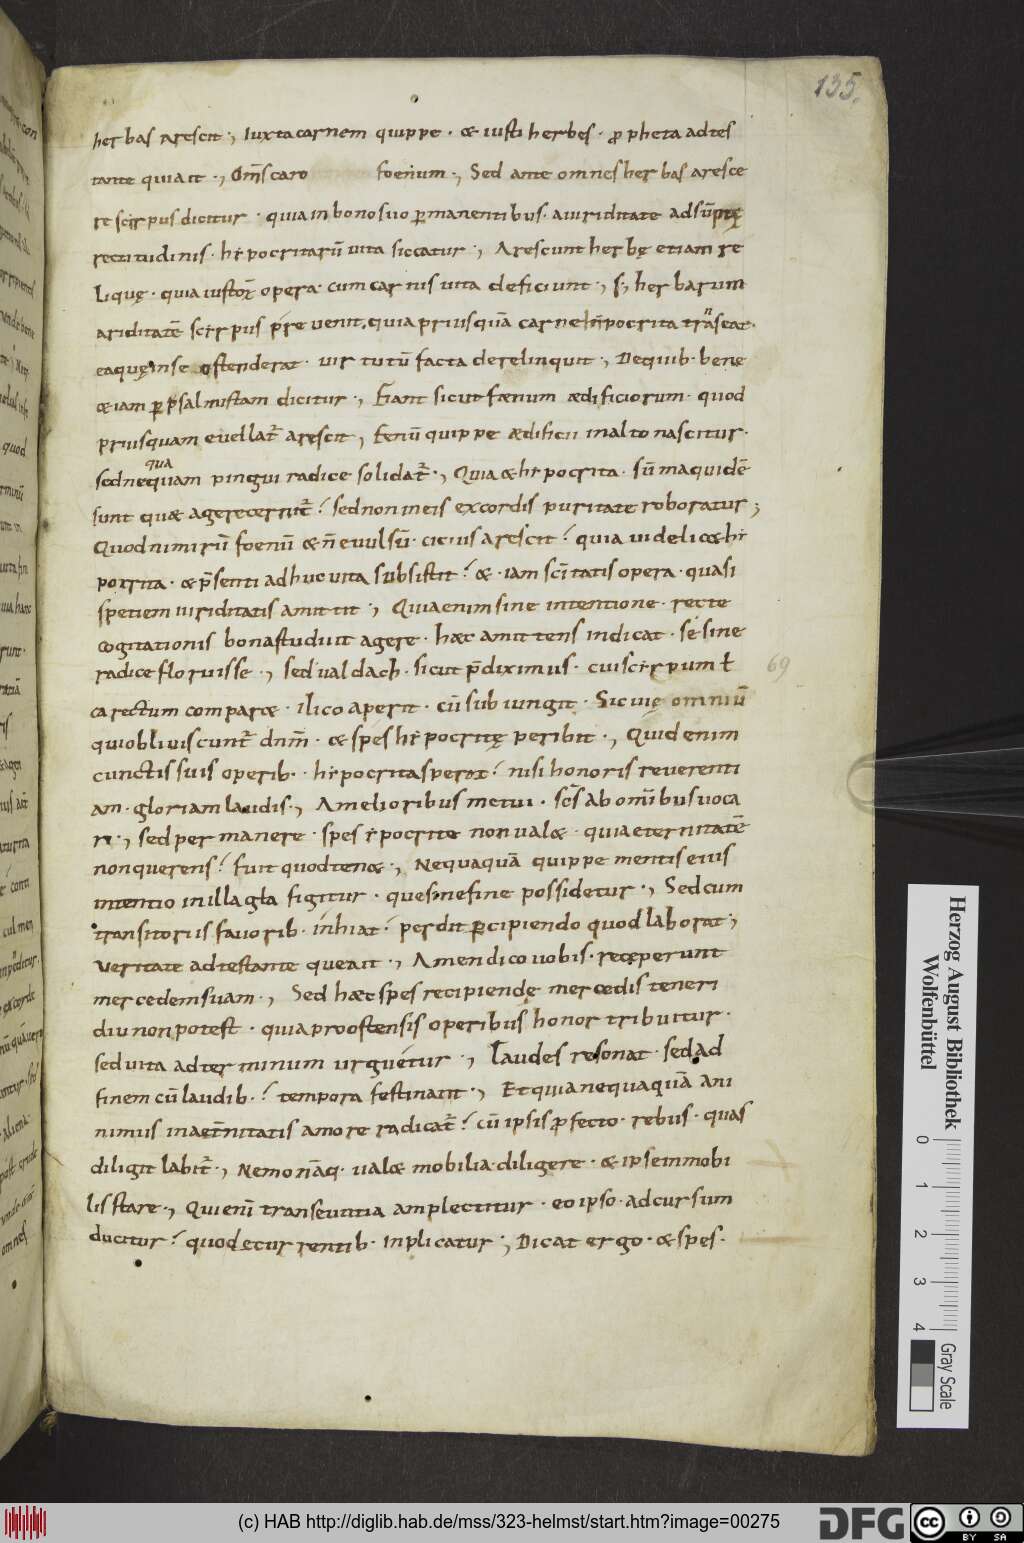 135.
herbas arescit ., Iuxta carnem quippe · & iusti herbęs · ꝓpheta adtes
tante qui ait ., Om̄s caro foenum ., Sed ante omnes herbas aresce
re scyrpus dicitur · quia in bono suo ꝑmanentibus · a uiriditate adsūptę
rectitudinis · hẏpocritarū uita siccatur ., Arescunt herbę etiam re
liquę · quia iustoꝝ opera · cum carnis uita deficiunt ., s; herbarum
ariditatē scẏrpus pręuenit, quia priusquā carne hẏpocrita trāseat ·
ea quę in se ostenderat · uirtutū facta derelinquit ., De quib · bene
&iam ꝑ psalmistam dicitur ., Fiant sicut fænum ædificiorum · quod
priusquam euellat᷑ arescit, Fenū quippe ædificii in alto nascitur ·
qua
sed nequam pingui radice solidat᷑ ., Quia & hẏpocrita · sūma quidē
sunt quæ agere cernit᷑ ? sed non in eis ex cordis puritate roboratur ;
Quod nimirū foenū & n̄ euulsū · citius arescit ? quia uidelic& hẏ
pocrita · & p̄senti adhuc uita subsistit ? & · iam sc̄itatis opera · quasi
spetiem uiriditatis amittit ., Quia enim sine intentione · recte
cogitationis bona studuit agere · hæc amittens indicat · se sine
radice floruisse ., sed ualdach · sicut p̄diximus · cui scẏrpum ł
carectum compar& · ilico aperit · cū subiungit · Sic uię omniū 69
qui obliuiscunt᷑ dn̄m · & spes hẏpocritę peribit ., Quid enim
cunctis suis operib · hẏpocrita sperat ? nisi honoris reuerenti
am · gloriam laudis ., A melioribus metui · sc̄s ab omībus uoca
ri ., sed permanere · spes ẏpocrite non ual& · quia eternitatē
non querens ? fugit quod ten& ., Nequaquā quippe mentis eius
intentio in illa gła figitur · que sine fine possidetur ., Sed cum
transitoriis fauorib · inhiat ? perdit ꝑcipiendo quod laborat ;
ueritate adtestante que ait ., Amen dico uobis · recęperunt
mercedem suam ., Sed hæc spes recipiendę mercedis teneri
diu non potest · quia pro ostensis operibus honor tribuitur ·
sed uita ad terminum urguétur ., Laudes resonat · sed ad
finem cū laudib · ? tempora festinant ., Et quia nequaquā ani
nimus in aet̄nitatis amore radicat᷑ ? cū ipsis ꝓfecto · rebus · quas
diligit labit᷑ ., Nemo nāq · ual& mobilia · diligere · & ipse inmobi
lis stare ., Qui enī transeuntia amplectitur · eo ipso · ad cursum
ducitur ? quo decurrentib · inplicatur ., Dicat ergo · & spes ·
Herzog August Bibliothek
Wolfenbüttel
0 1 2 3 4
Gray Scale
(c) HAB http://diglib.hab.de/mss/323-helmst/start.htm?image=00275
DFG
cc BY SA